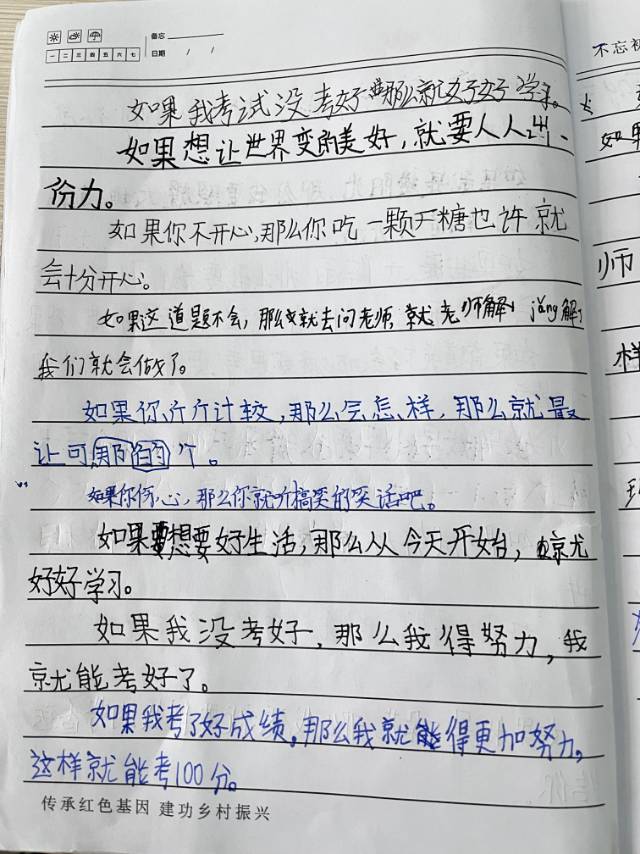 备忘
一 二 三 四 五 六 七
日期 / /
不忘初
如果我考试没考好那么就好好学习。
如果想让世界变美好，就要人人出一
份力。
如果你不开心，那么你吃一颗糖也许就
会十分开心。
如果这道题不会，那么就去问老师，老师解 jiǎng解了
我们就会做了。
如果你斤斤计较，那么会怎样，那么就是
让可那的个。
如果你伤心，那么你就听搞笑的笑话吧。
如果想要好生活，那么从今天开始，就
好好学习。
如果我没考好，那么我得努力，我
就能考好了。
如果我考了好成绩，那么我就能得更加努力，
这样就能考100分。
传承红色基因 建功乡村振兴
如果
师
样